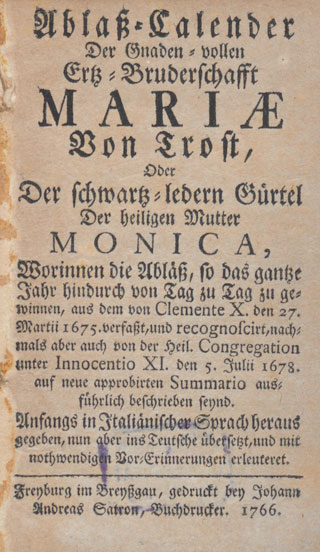 Ablaß-Calender
Der Gnaden-vollen
Ertz-Bruderschafft
MARIÆ
Von Trost,
Oder
Der schwartz-ledern Gürtel
Der heiligen Mutter
MONICA,
Worinnen die Abläß, so das gantze
Jahr hindurch von Tag zu Tag zu ge-
winnen, aus dem von Clemente X. den 27.
Martii 1675. verfaßt, und recognoscirt, nach-
mals aber auch von der Heil. Congregation
unter Innocentio XI. den 5. Julii 1678.
auf neue approbirten Summario aus-
führlich beschrieben seynd.
Anfangs in Italiänischer Sprach heraus
gegeben, nun aber ins Teutsche übersetzt, und mit
nothwendigen Vor-Erinnerungen erleuteret.
Freyburg im Breyßgau, gedruckt bey Johann
Andreas Satron, Buchdrucker. 1766.